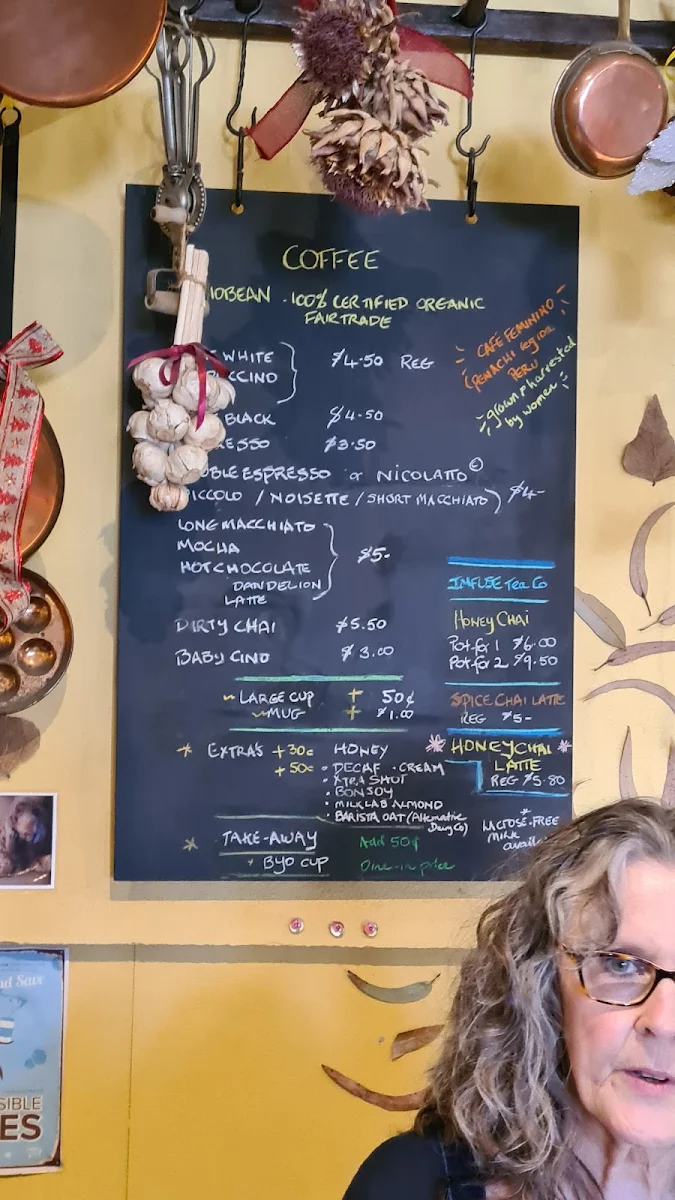 COFFEE
IOBEAN . 100% CERTIFIED ORGANIC
FAIRTRADE
CAFE FEMININO
PENACHI region
PERU
grown & harvested
by women
WHITE
CCINO
$4.50 REG
BLACK $4.50
ESSO $3.50
BLE ESPRESSO or NICOLATTO ©
PICCOLO / NOISETTE / SHORT MACCHIATO $4-
LONG MACCHIATO
MOCHA
HOT CHOCOLATE
DANDELION
LATTE
$5-
DIRTY CHAI $5.50
BABY CINO $3.00
LARGE CUP + 50¢
MUG + $1.00
EXTRA'S +30c HONEY
+50c • DECAF • CREAM
• XTRA SHOT
• BONSOY
• MILKLAB ALMOND
• BARISTA OAT (Alternative
Dairy Co)
TAKE-AWAY Add 50¢
+ BYO CUP Dine-in price
INFUSE Tea Co
HONEY CHAI
Pot for 1 $6.00
Pot for 2 $9.50
SPICE CHAI LATTE
REG $5-
HONEY CHAI
LATTE
REG $5.80
LACTOSE-FREE
Milk
avail
nd Save
SIBLE
ES